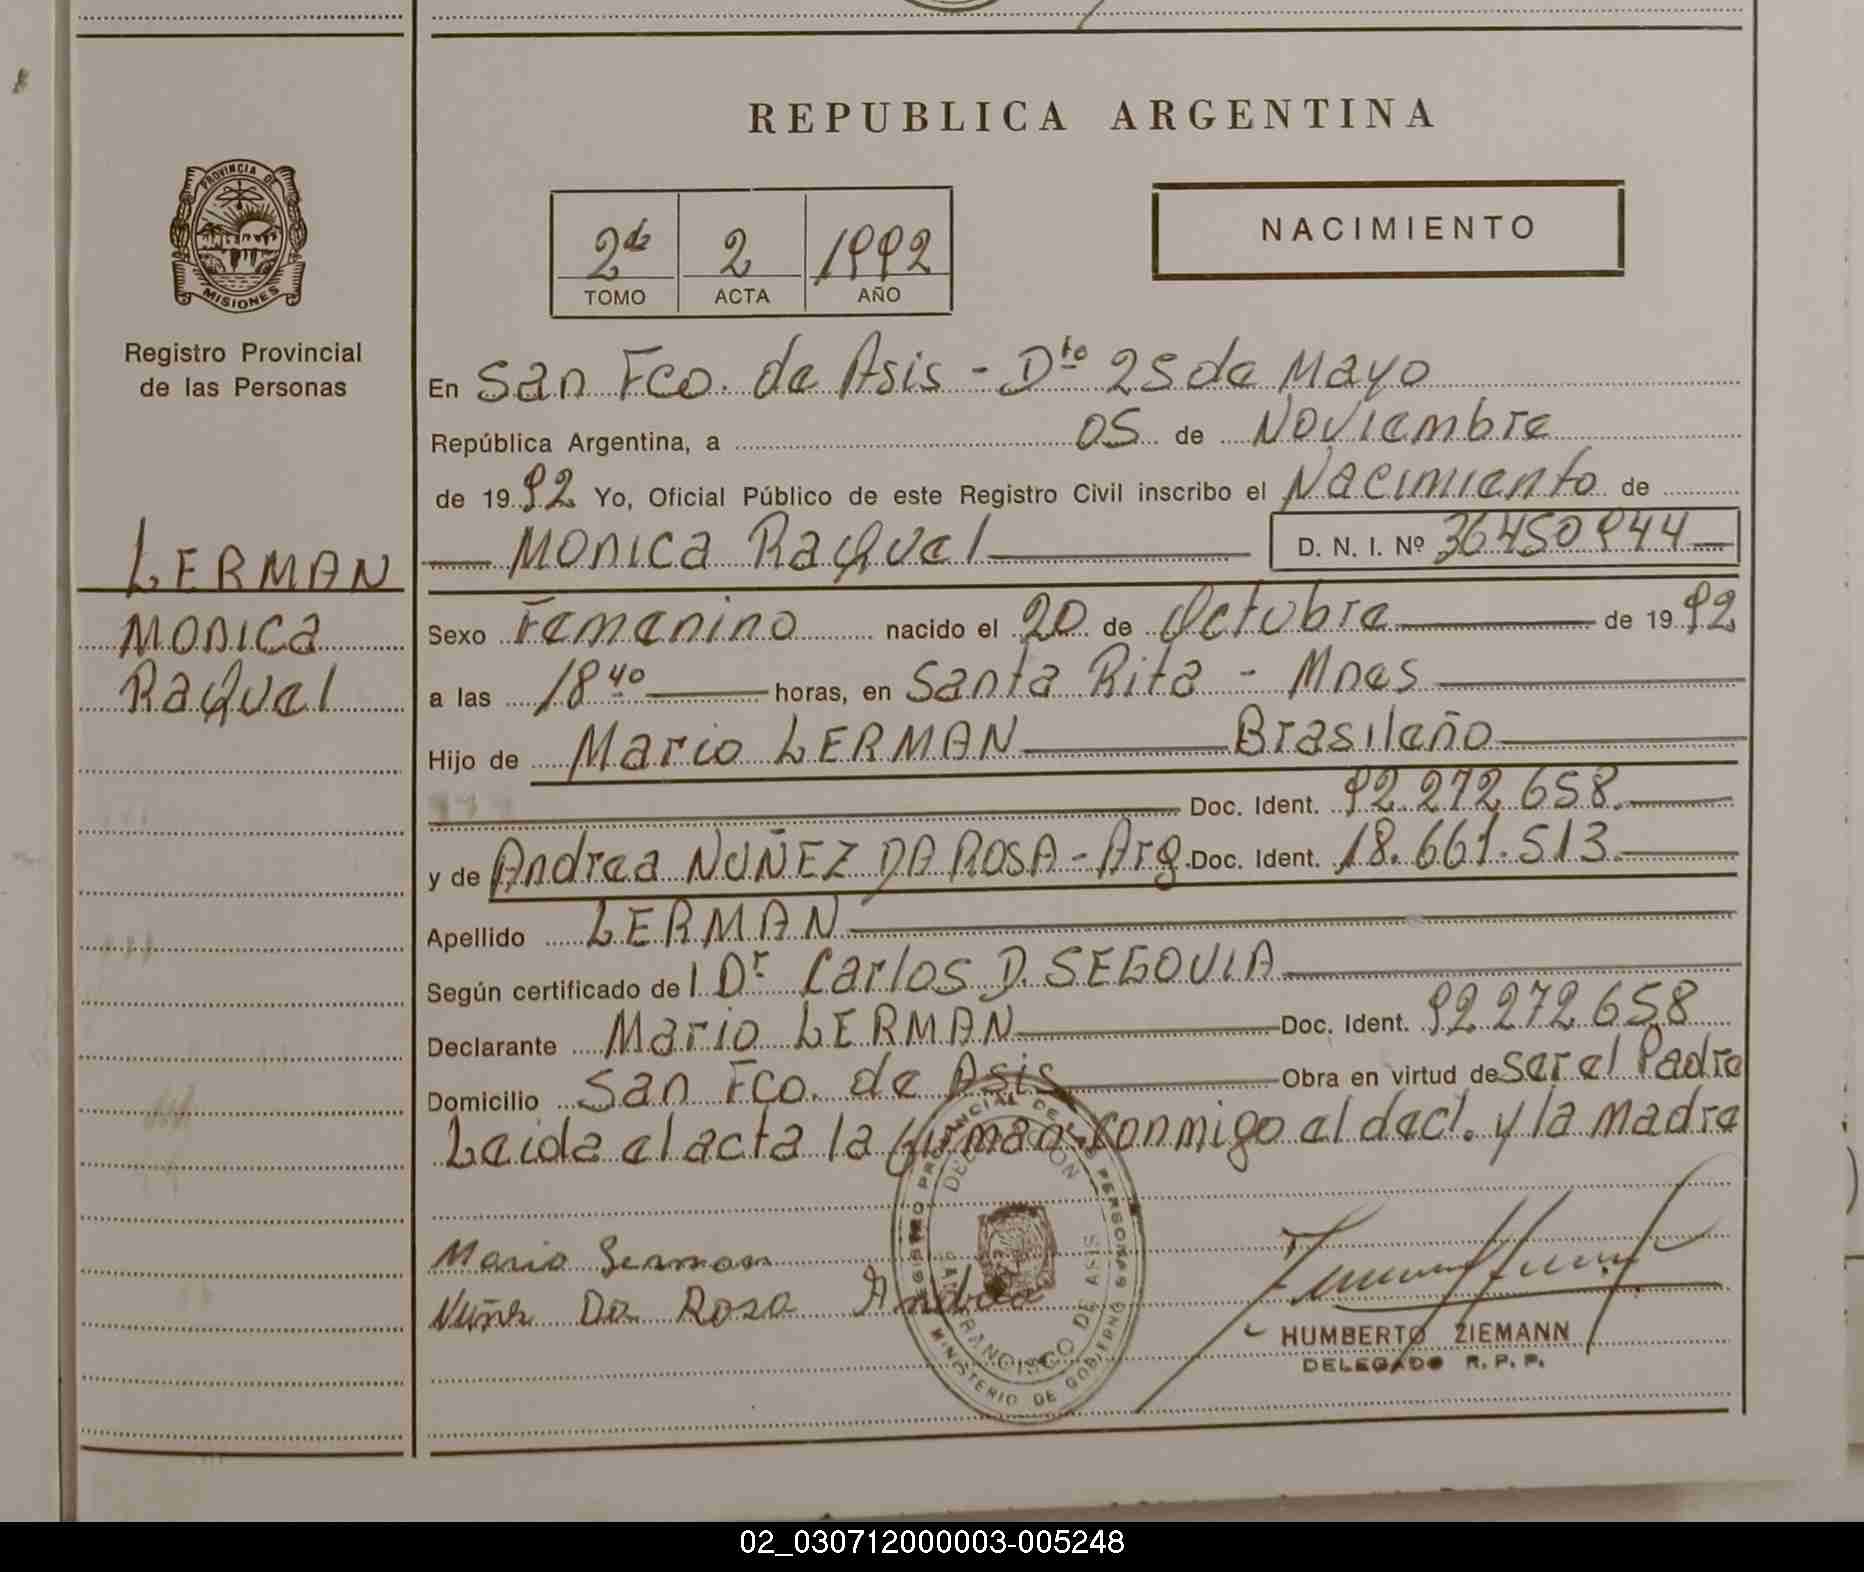 REPUBLICA ARGENTINA
PROVINCIA DE
MISIONES
Registro Provincial
de las Personas
LERMAN
MONICA
Raquel
2do 2 1992
TOMO ACTA AÑO
NACIMIENTO
En San Fco. de Asis - Dto 25 de Mayo
República Argentina, a 05 de Noviembre
de 1992 Yo, Oficial Público de este Registro Civil inscribo el Nacimiento de
MONICA Raquel D. N. I. Nº 36450944
Sexo Femenino nacido el 20 de Octubre de 1992
a las 18 40 horas, en Santa Rita - Mnes
Hijo de Mario LERMAN Brasileño
Doc. Ident. 92.272.658.
y de Andrea NUÑEZ DA ROSA - Arg. Doc. Ident. 18.661.513
Apellido LERMAN
Según certificado del Dr Carlos D. SEGOVIA
Declarante Mario LERMAN Doc. Ident. 92272658
Domicilio San Fco. de Asis Obra en virtud de ser el Padre
Leida el acta la firman conmigo el decl. y la madre
Mario Lerman
Nuñez Da Rosa Andrea
REGISTRO PROVINCIAL DE LAS PERSONAS
DELEGACION
SAN FRANCISCO DE ASIS
MINISTERIO DE GOBIERNO
HUMBERTO ZIEMANN
DELEGADO R. P. P.
02_030712000003-005248